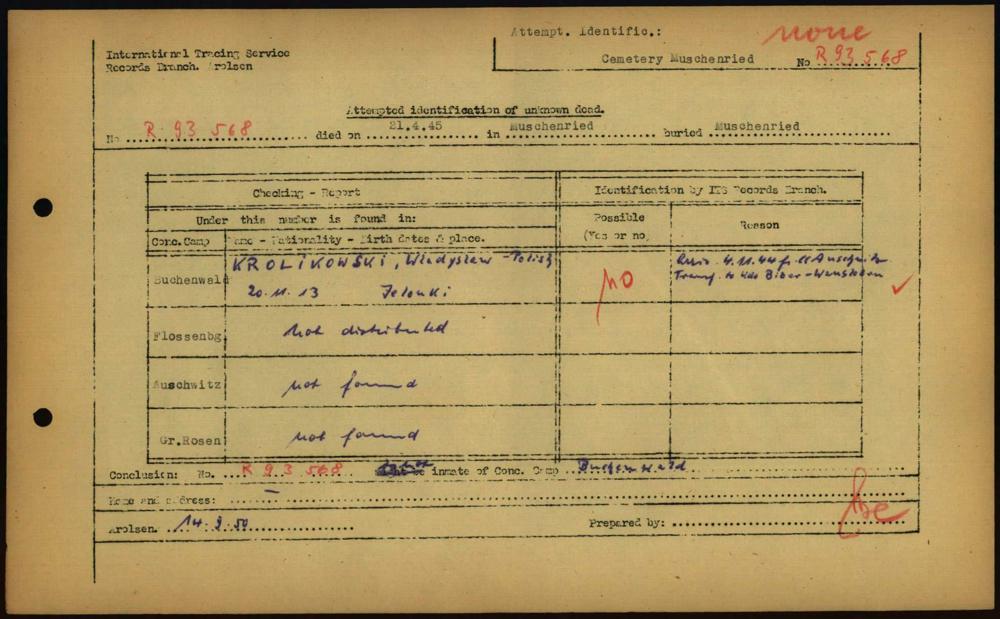 International Tracing Service
Records Branch. Arolsen
Attempt. Identific.: none
Cemetery Muschenried No R 93 568
Attempted identification of unknown dead.
No R 93 568 died on 21.4.45 in Muschenried buried Muschenried
Checking - Report
Identification by ITS Records Branch.
Under this number is found in:
Possible (Yes or no)
Reason
Conc.Camp
Name - Nationality - Birth dates & place.
Buchenwald
KROLIKOWSKI, Wladyslaw - Polish
20.11.13 Jelonki
no
4.11.44 Auschwitz
Transf. to Kdo
Flossenbg.
not distributed
Auschwitz
not found
Gr.Rosen
not found
Conclusion: No. R 93 568 inmate of Conc. Camp Buchenwald
Name and address: -
Arolsen. 14.9.50 Prepared by: